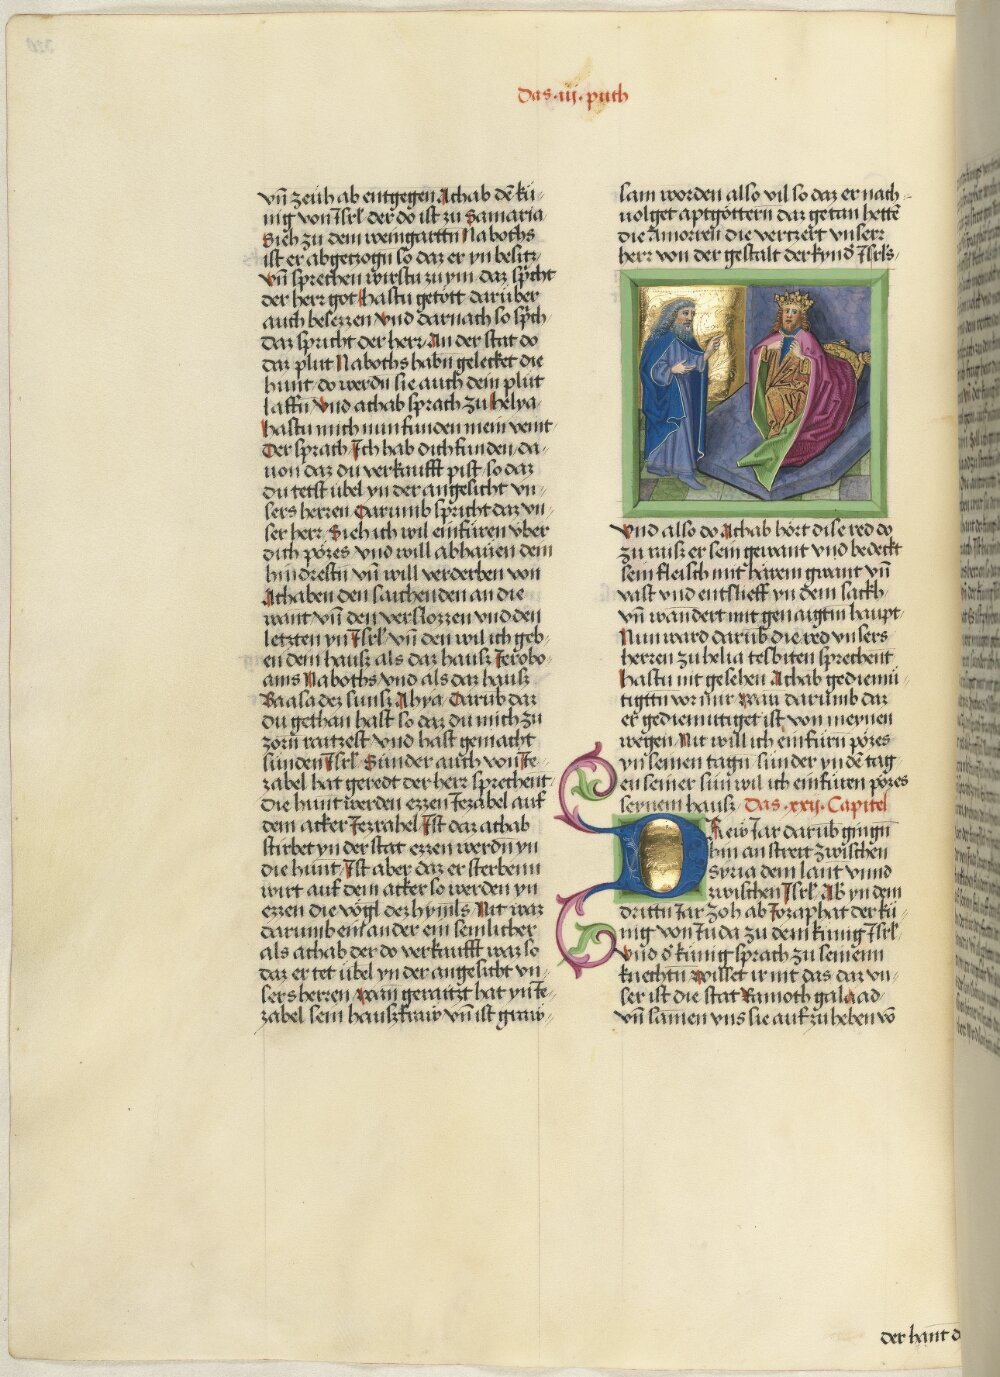 das .iij. puch
vn̄ zeuh ab entgegen Achab dē kü-
nig von Jsrl̄ der do ist zu Samaria
Sich zu dem weingarttn Naboths
ist er abgetzogn so daz er yn besitz
Vn̄ sprechen wirstu zu ym daz spricht
der herr got Hastu getött darüber
auch besezzen Vnd darnach so sprich
Daz spricht der herr An der stat do
daz plut Naboths habn gelecket die
hunt do werdn sie auch dein plüt
laffn Vnd achab sprach zu Helya
Hastu mich nun funden mein veint
Der sprach Jch hab dich funden da-
uon daz du verkaufft pist so daz
du tetst übel yn der angesicht vn-
sers herren Darumb spricht daz vn-
ser herr Sich ich wil einfüren vber
dich pözes vnd will abhauen dein
hindrestn vn̄ will verderben von
Achaben den saichenden an die
want vn̄ den verslozzen vnd den
letzten yn Jsrl̄ vn̄ den wil ich geb-
en dein hausz als daz hausz Jerobo-
ams Naboths vnd als daz hausz
Baasa dez suns Ahya Darüb daz
du gethan hast so daz du mich zu
zorn raitzest vnd hast gemacht
sünden Jsrl̄ Sunder auch von Je-
zabel hat geredt der herr sprechent
die hunt werden ezzen Jezabel auf
dem acker Jezrahel Jst daz achab
stirbet yn der stat ezzen werdn yn
die hunt Jst aber daz er sterbenn
wirt auf dem acker so werden yn
ezzen die vögl dez hymls Nit waz
darumb ein ander ein semlicher
als achab der do verkaufft waz so
daz er tet übel yn der angesicht vn-
sers herren Wan geraitzt hat yn Je-
zabel sein hauszfraw vn̄ ist graw-
sam worden also vil so daz er nach-
uolget aptgöttern daz getan hettē
die Amorrei die vertzert vnserr
herr von der gestalt der kynd Jsrls
Vnd also do Achab hört dise red do
zu raisz er sein gewant vnd bedeckt
sein fleisch mit härem gwant vn̄
vast vnd entslieff yn dem sackh
vn̄ wandert mit genaigtm haupt
Nun ward darüb die red vnsers
herren zu helia tesbiten sprechent
hastu nit gesehen Achab gediemü-
tigttn vor mir Wan darumb daz
er gediemüttiget ist von meynen
wegen Nit will ich einfürn pözes
yn seinen tagn Sunder yn dē tag-
en seiner sün wil ich einfüren pözes
seynem hausz Das .xxij. Capitel
Drew Jar darüb gingn
hin an streit zwischen
Syria dem lant vnnd
zwischen Jsrl̄ Ab yn dem
drittn Jar zoh ab Jozaphat der kü-
nig von Juda zu dem künig Jsrl̄
Vnd d' künig sprach zu seinenn
knechtn Wisset ir nit das daz vn-
ser ist die stat Ramoth galaad
vn̄ samen vns sie auf zu heben vō
der hant d